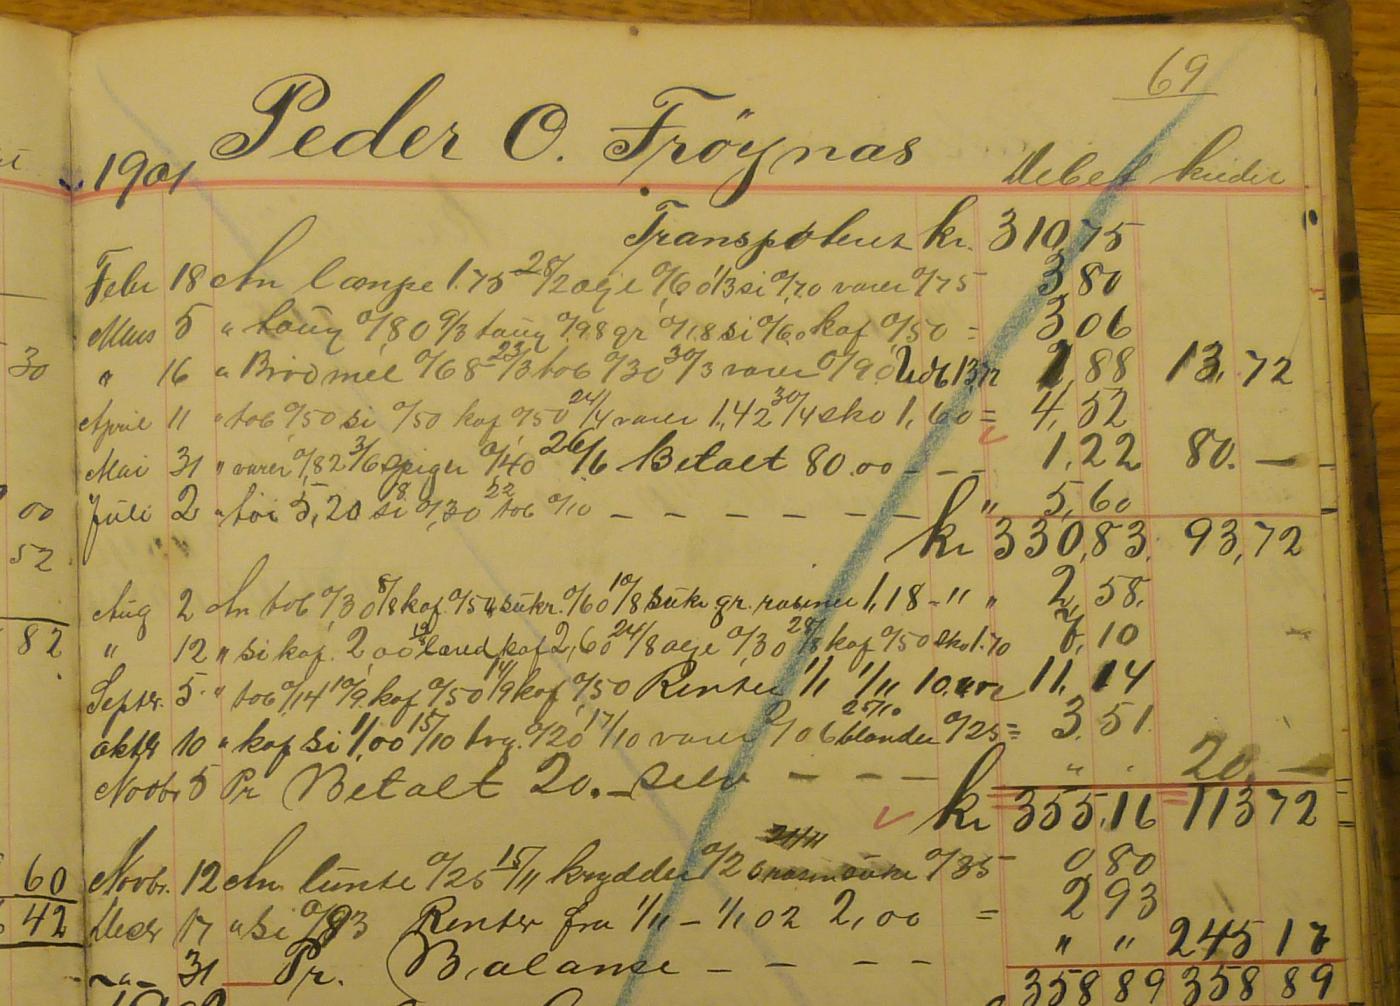 69
Peder O. Fröynas
1901 Debet Kredit
Transporteret kr. 310,75
Febr 18 An lampe 1.75 28/2 olje 0/60 1/3 si 0/70 varer 0/75 3,80
30
Mars 5 " taug 0/80 9/3 taug 0/98 gr 0/18 si 0/60 kaf 0/50 = 3,06
" 16 " Brødmel 0/68 23/3 tob 0/30 30/3 varer 0/90 Udb 13,72 1,88 13,72
April 11 " tob 0/50 si 0/50 kaf 0/50 24/4 varer 1,42 30/4 sko 1,60 = 4,52
Mai 31 " varer 0/82 3/6 spiger 0/40 26/6 Betalt 80.00 - - - 1,22 80. —
00 Juli 2 " tøi 5,20 8 si 0/30 22 tob 0/10 - - - - - " 5,60
52 kr 330,83 93,72
Aug 2 An tob 0/30 8/8 kaf 0/50 sukr. 0/60 10/8 sukr gr. rosiner 1,18 - " " 2,58
82 " 12 " si kaf. 2,00 kaf 2,60 24/8 olje 0/30 28/8 kaf 0/50 sko 1.70 7,10
Septr. 5. " tob 0/14 10/9 kaf 0/50 14/9 kaf 0/50 Renter 1/1 1/11 10.00 11,14
oktbr 10 " kaf si 1,00 15/10 0/20 17/10 varer 2/06 25/10 0/25 = 3.51
Novbr 5 Pr Betalt 20. — Selv - - - " " 20. —
kr 355,16 113 72
60 Novbr. 12 An lunte 0/25 15/11 krydder 0/20 0/35 0,80
42 Decbr 17 " Si 0/93 Renter fra 1/11 - 1/1 02 2,00 = 2 93
- " - 31 Pr. Balanse - - - - " " 245 17
358 89 358 89